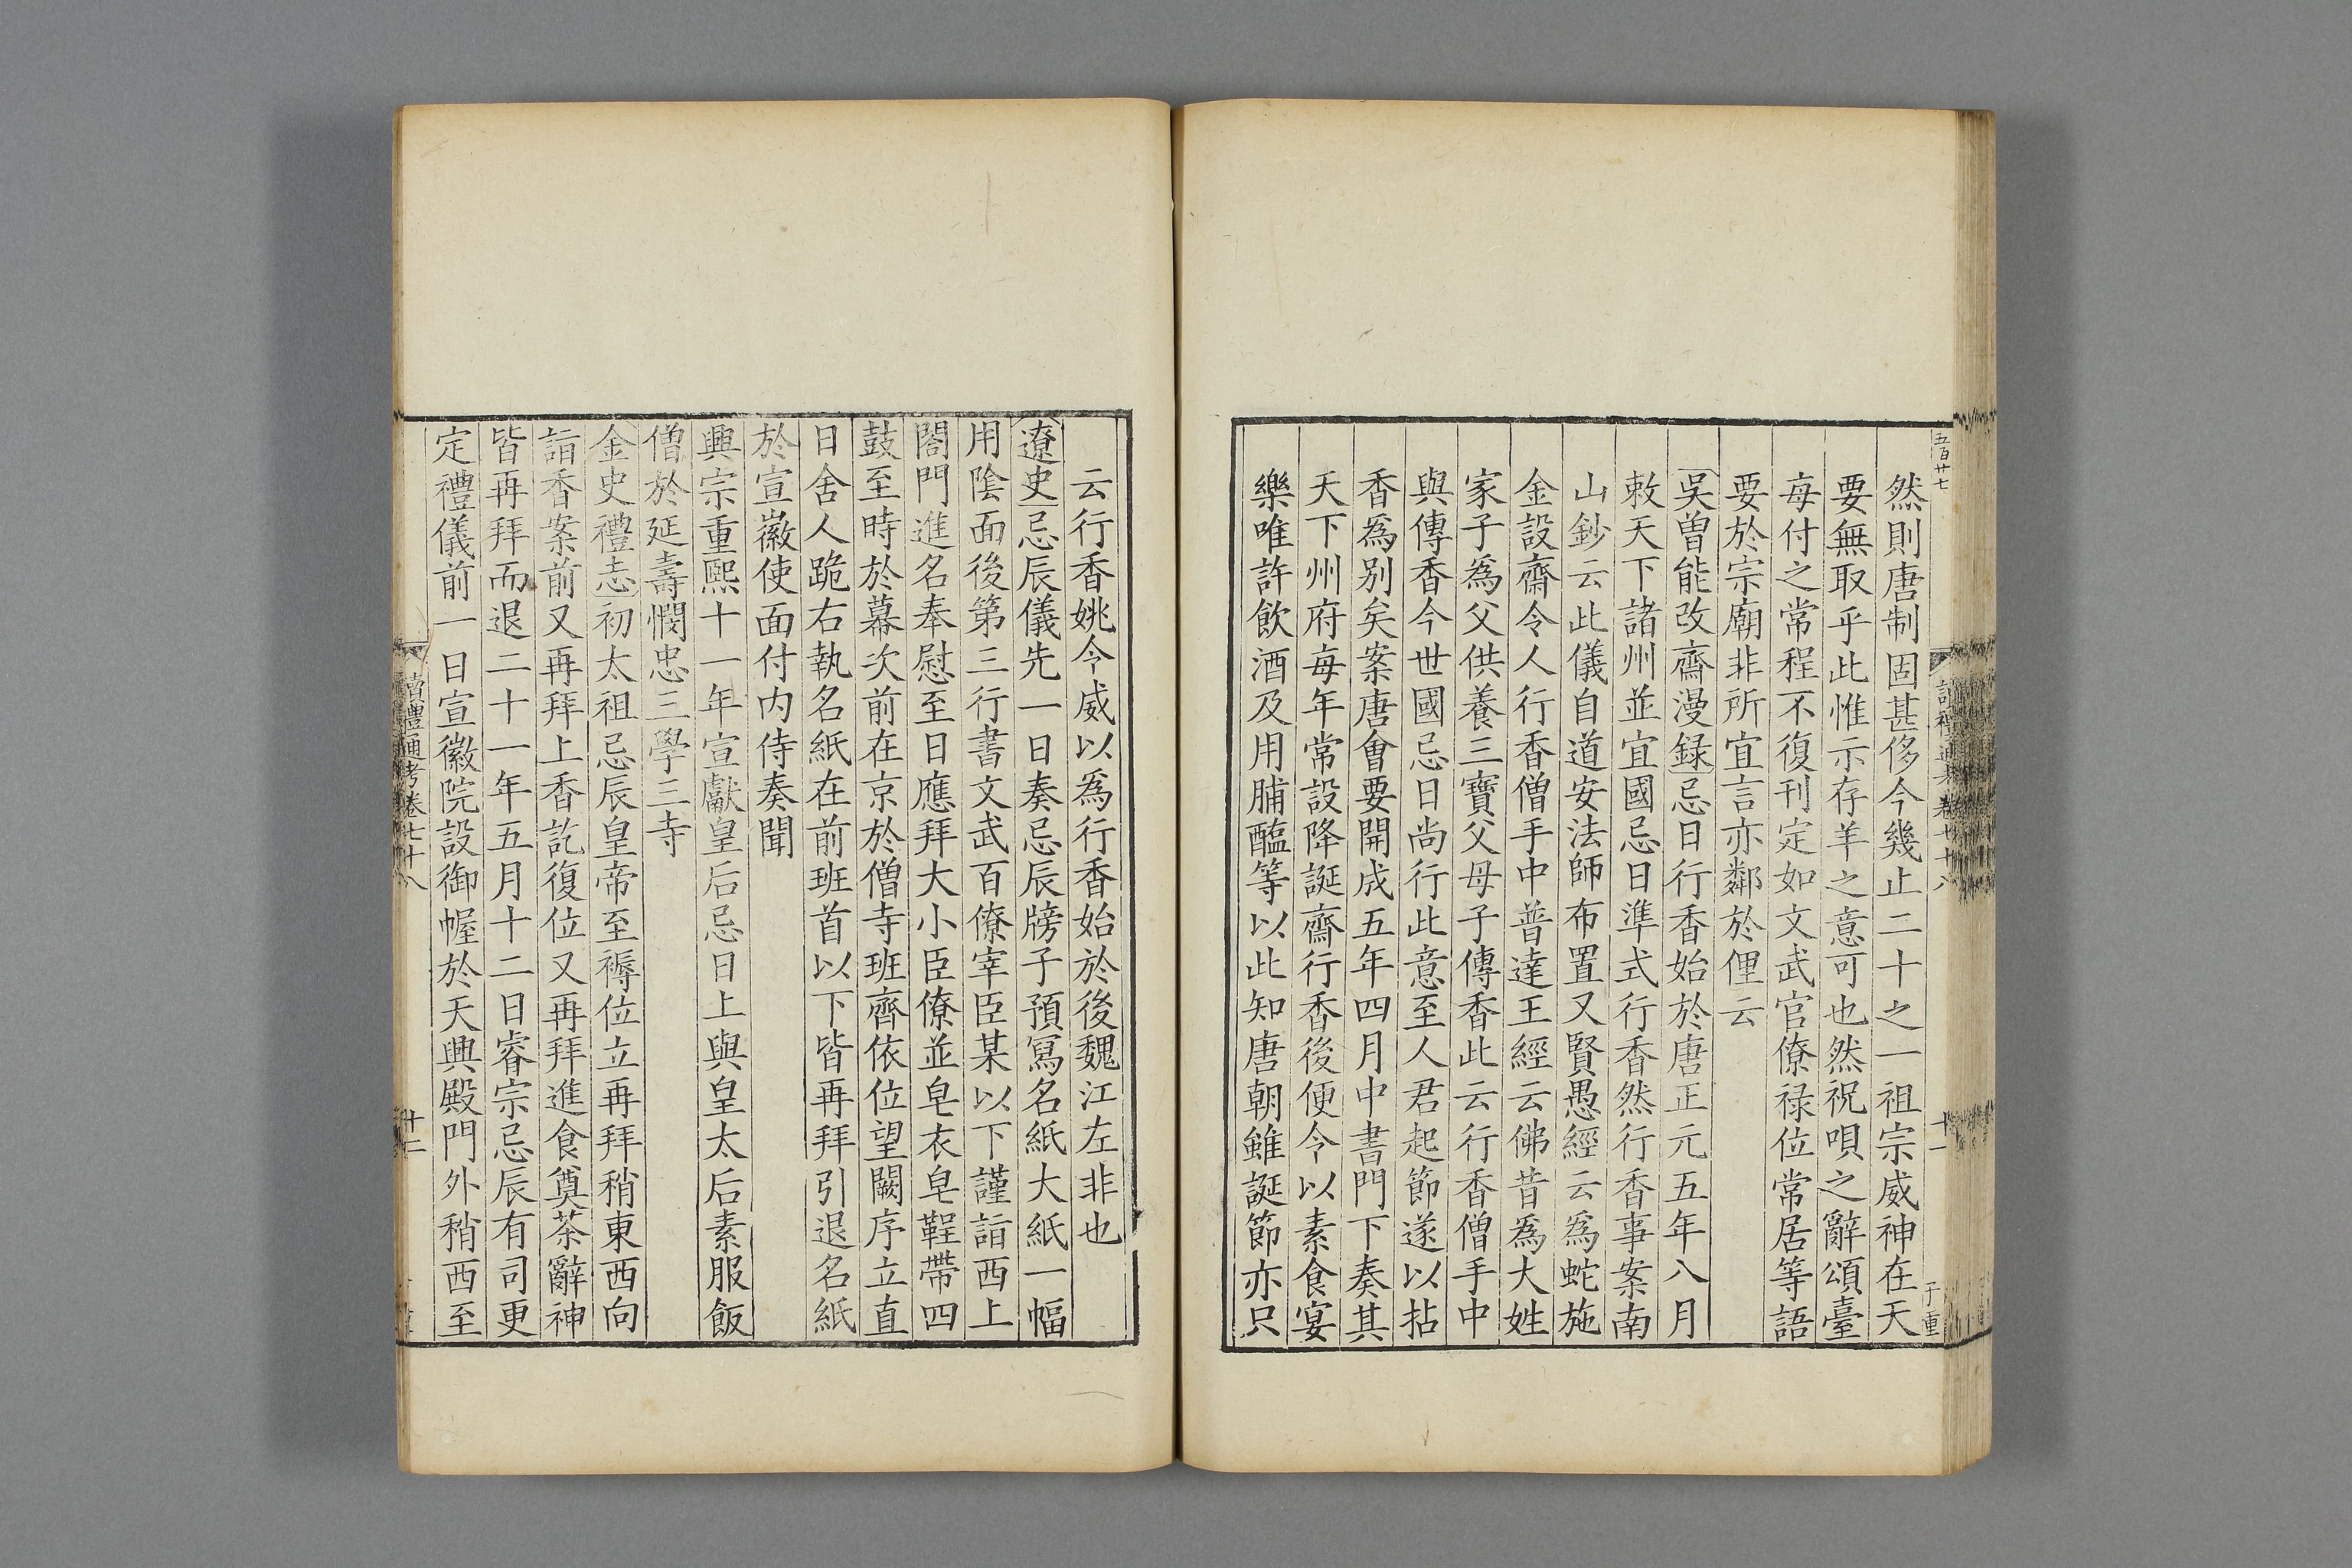 五百廿七
然則唐制固甚侈今幾止二十之一祖宗威神在天
要無取乎此惟示存羊之意可也然祝唄之辭頌臺
每付之常程不復刊定如文武官僚祿位常居等語
要於宗廟非所宜言亦鄰於俚云
吳曾能改齋漫録忌日行香始於唐正元五年八月
敕天下諸州並宜國忌日準式行香然行香事案南
山鈔云此儀自道安法師布置又賢愚經云爲蛇施
金設齋令人行香僧手中普達王經云佛昔爲大姓
家子爲父供養三寶父母子傳香此云行香僧手中
與傳香今世國忌日尚行此意至人君起節遂以拈
香爲別矣案唐會要開成五年四月中書門下奏其
天下州府每年常設降誕齋行香後便令以素食宴
樂唯許飲酒及用脯醢等以此知唐朝雖誕節亦只
云行香姚令威以爲行香始於後魏江左非也
遼史忌辰儀先一日奏忌辰牓子預寫名紙大紙一幅
用陰面後第三行書文武百僚宰臣某以下謹詣西上
閤門進名奉慰至日應拜大小臣僚並皂衣皂鞓帶四
鼓至時於幕次前在京於僧寺班齊依位望闕序立直
日舍人跪右執名紙在前班首以下皆再拜引退名紙
於宣徽使面付内侍奏聞
興宗重熙十一年宣獻皇后忌日上與皇太后素服飯
僧於延壽憫忠三學三寺
金史禮志初太祖忌辰皇帝至褥位立再拜稍東西向
詣香案前又再拜上香訖復位又再拜進食奠茶辭神
皆再拜而退二十一年五月十二日睿宗忌辰有司更
定禮儀前一日宣徽院設御幄於天興殿門外稍西至
讀禮通考卷七十八
十二